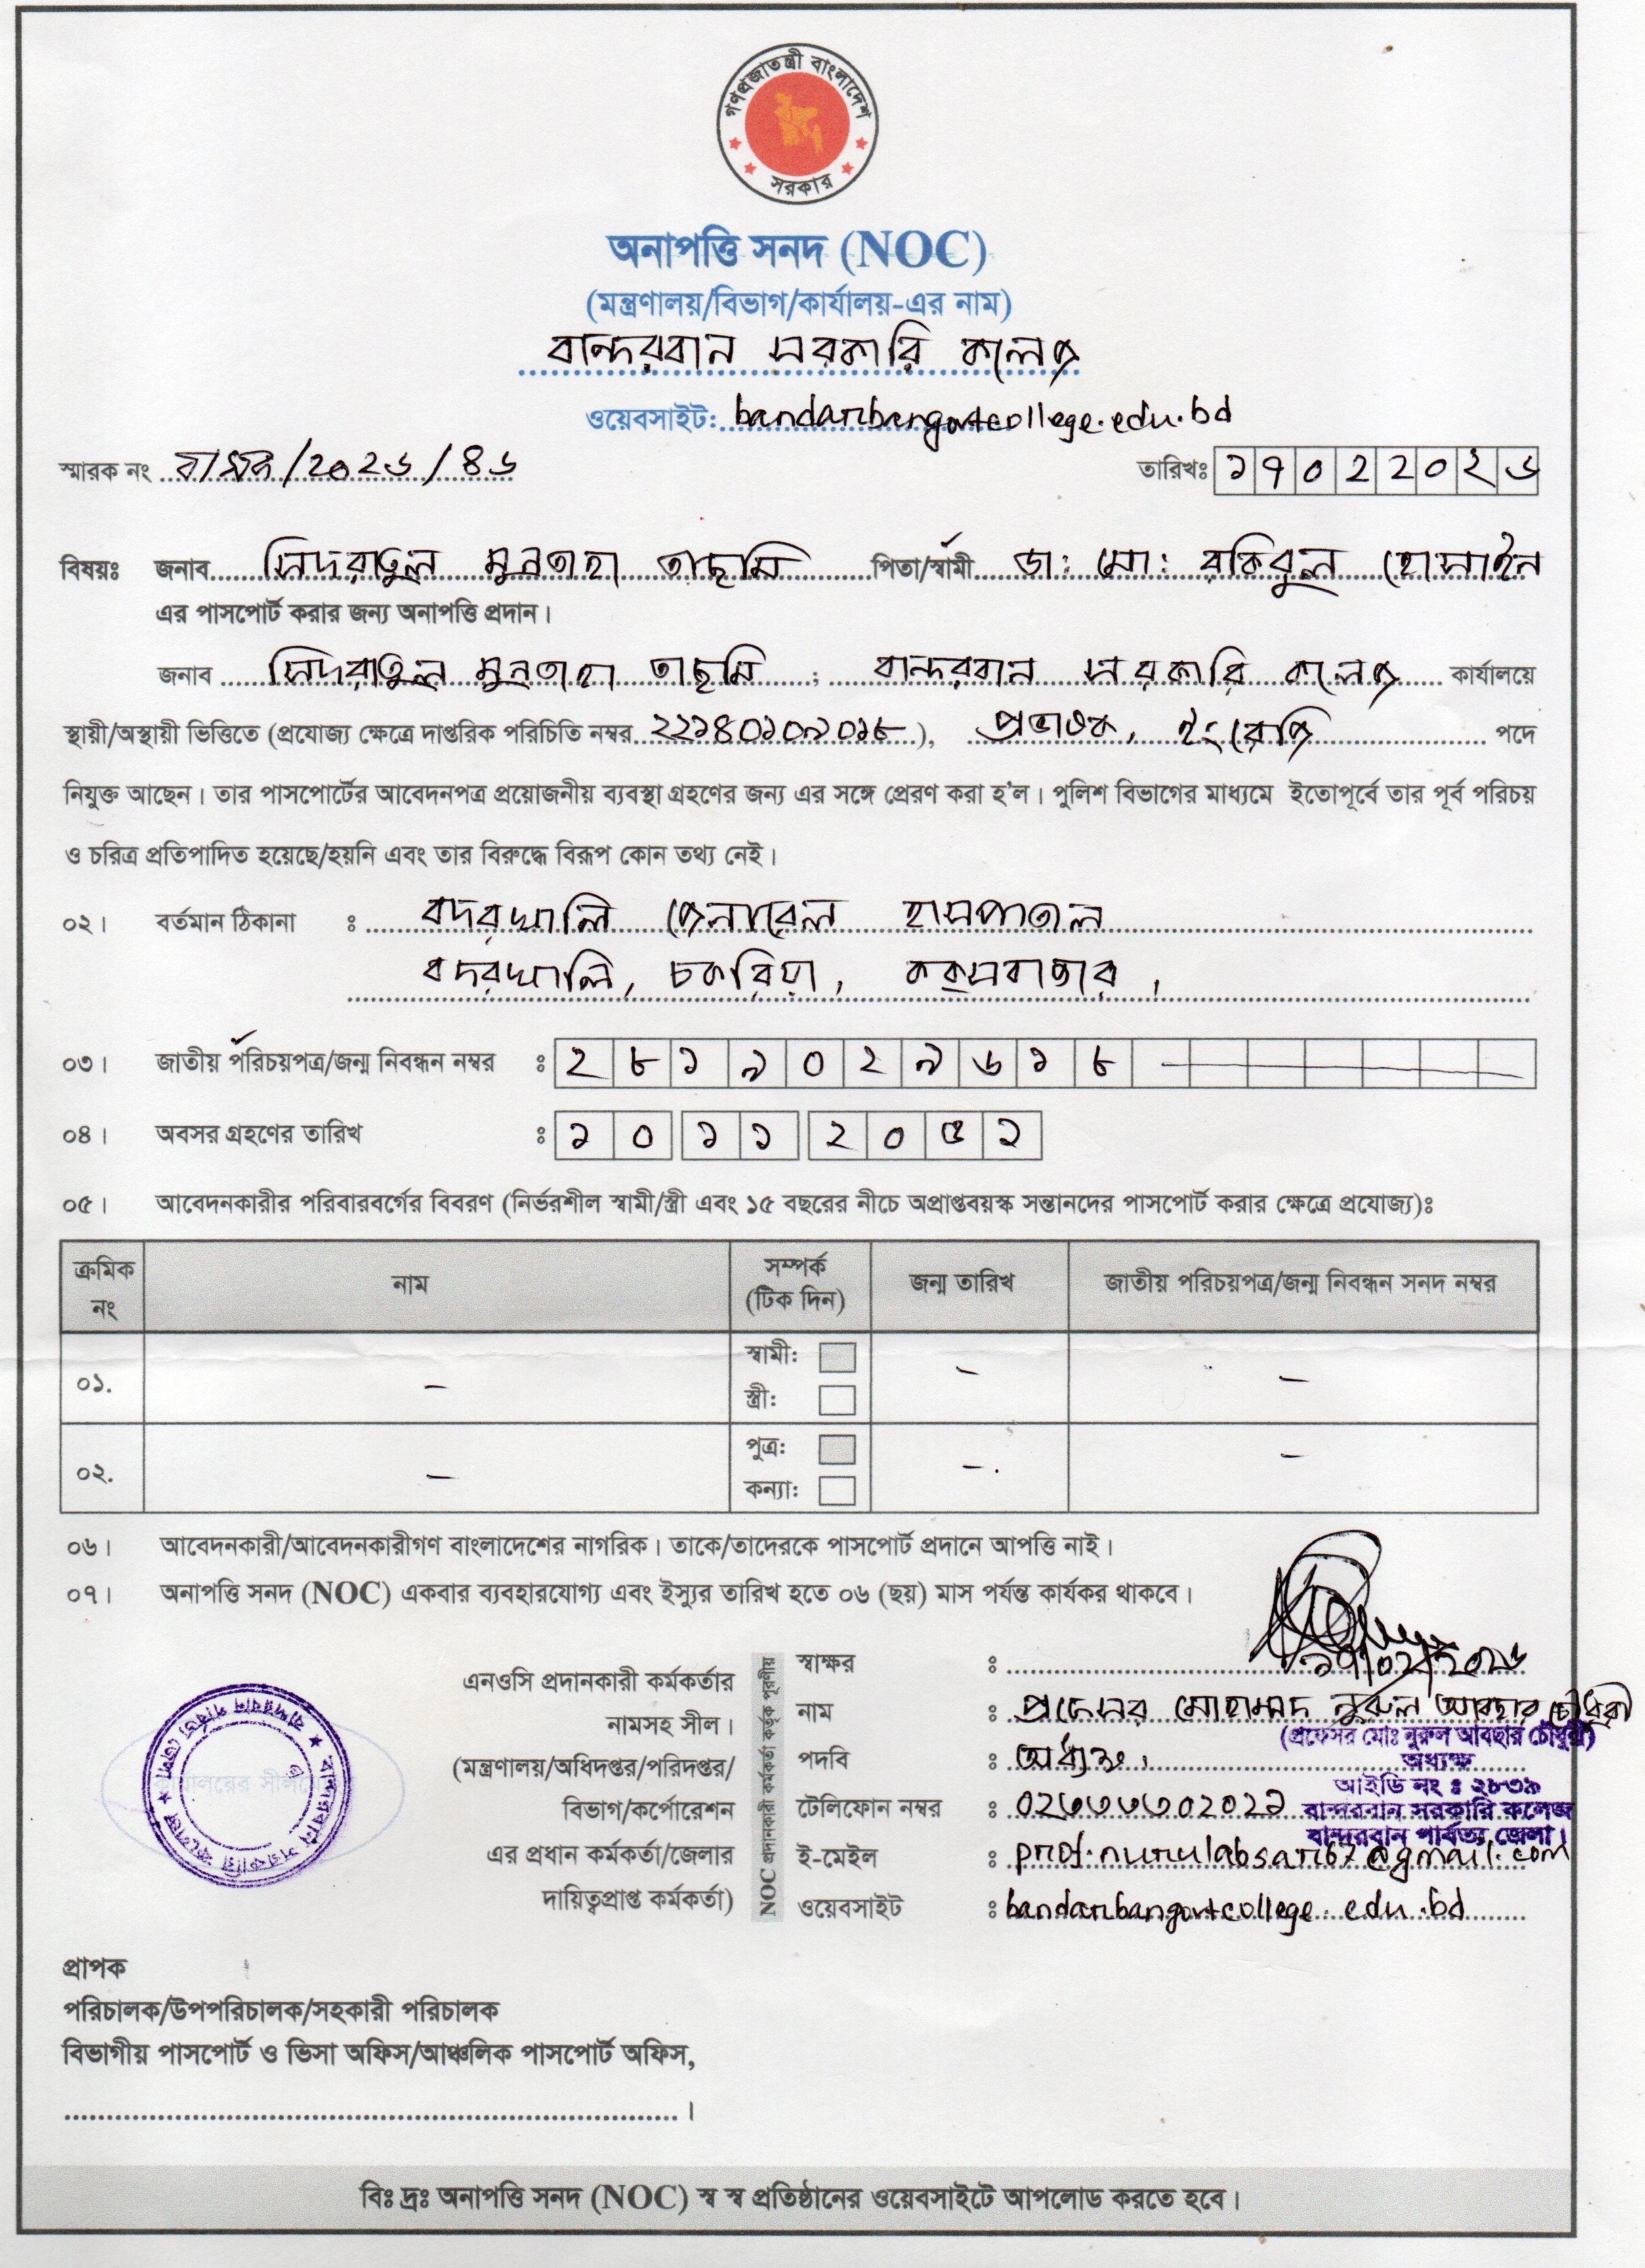 গণপ্রজাতন্ত্রী বাংলাদেশ
সরকার
অনাপত্তি সনদ (NOC)
(মন্ত্রণালয়/বিভাগ/কার্যালয়-এর নাম)
বান্দরবান সরকারি কলেজ
ওয়েবসাইট: bandarbangovtcollege.edu.bd
স্মারক নং বাসক/২০২৬/৪৬ তারিখঃ ১৭০২২০২৬
বিষয়ঃ জনাব সিদরাতুল মুনতাহা তাছমি পিতা/স্বামী ডা: মো: রকিবুল হোসাইন
এর পাসপোর্ট করার জন্য অনাপত্তি প্রদান।
জনাব সিদরাতুল মুনতাহা তাছমি ; বান্দরবান সরকারি কলেজ কার্যালয়ে
স্থায়ী/অস্থায়ী ভিত্তিতে (প্রযোজ্য ক্ষেত্রে দাপ্তরিক পরিচিতি নম্বর ২২১৪০১০৯০১৮), প্রভাষক, ইংরেজি পদে
নিযুক্ত আছেন। তার পাসপোর্টের আবেদনপত্র প্রয়োজনীয় ব্যবস্থা গ্রহণের জন্য এর সঙ্গে প্রেরণ করা হ'ল। পুলিশ বিভাগের মাধ্যমে ইতোপূর্বে তার পূর্ব পরিচয়
ও চরিত্র প্রতিপাদিত হয়েছে/হয়নি এবং তার বিরুদ্ধে বিরূপ কোন তথ্য নেই।
০২। বর্তমান ঠিকানা ঃ বদরখালি জেনারেল হাসপাতাল
বদরখালি, চকরিয়া, কক্সবাজার,
০৩। জাতীয় পরিচয়পত্র/জন্ম নিবন্ধন নম্বর ঃ ২৮১৯০২৯৬১৮
০৪। অবসর গ্রহণের তারিখ ঃ ১০ ১১ ২০৫২
০৫। আবেদনকারীর পরিবারবর্গের বিবরণ (নির্ভরশীল স্বামী/স্ত্রী এবং ১৫ বছরের নীচে অপ্রাপ্তবয়স্ক সন্তানদের পাসপোর্ট করার ক্ষেত্রে প্রযোজ্য)ঃ
ক্রমিক নং নাম সম্পর্ক (টিক দিন) জন্ম তারিখ জাতীয় পরিচয়পত্র/জন্ম নিবন্ধন সনদ নম্বর
০১. – স্বামী: – –
স্ত্রী:
০২. – পুত্র: – –
কন্যা:
০৬। আবেদনকারী/আবেদনকারীগণ বাংলাদেশের নাগরিক। তাকে/তাদেরকে পাসপোর্ট প্রদানে আপত্তি নাই।
০৭। অনাপত্তি সনদ (NOC) একবার ব্যবহারযোগ্য এবং ইস্যুর তারিখ হতে ০৬ (ছয়) মাস পর্যন্ত কার্যকর থাকবে।
এনওসি প্রদানকারী কর্মকর্তার
নামসহ সীল।
(মন্ত্রণালয়/অধিদপ্তর/পরিদপ্তর/
বিভাগ/কর্পোরেশন
এর প্রধান কর্মকর্তা/জেলার
দায়িত্বপ্রাপ্ত কর্মকর্তা)
NOC প্রদানকারী কর্মকর্তা কর্তৃক পূরণীয়
স্বাক্ষর ঃ ১৭/০২/২০২৬
নাম ঃ প্রফেসর মোহাম্মদ নুরুল আবছার চৌধুরী
(প্রফেসর মোঃ নুরুল আবছার চৌধুরী)
পদবি ঃ অধ্যক্ষ।
অধ্যক্ষ
আইডি নং ঃ ২৮৩৯
টেলিফোন নম্বর ঃ ০২৩৩৩৩০২০২৯
বান্দরবান সরকারি কলেজ
বান্দরবান পার্বত্য জেলা।
ই-মেইল ঃ prof.nurulabsar67@gmail.com
ওয়েবসাইট ঃ bandarbangovtcollege.edu.bd
বান্দরবান সরকারি কলেজ ★ বান্দরবান পার্বত্য জেলা ★
প্রাপক
পরিচালক/উপপরিচালক/সহকারী পরিচালক
বিভাগীয় পাসপোর্ট ও ভিসা অফিস/আঞ্চলিক পাসপোর্ট অফিস,
।
বিঃ দ্রঃ অনাপত্তি সনদ (NOC) স্ব স্ব প্রতিষ্ঠানের ওয়েবসাইটে আপলোড করতে হবে।